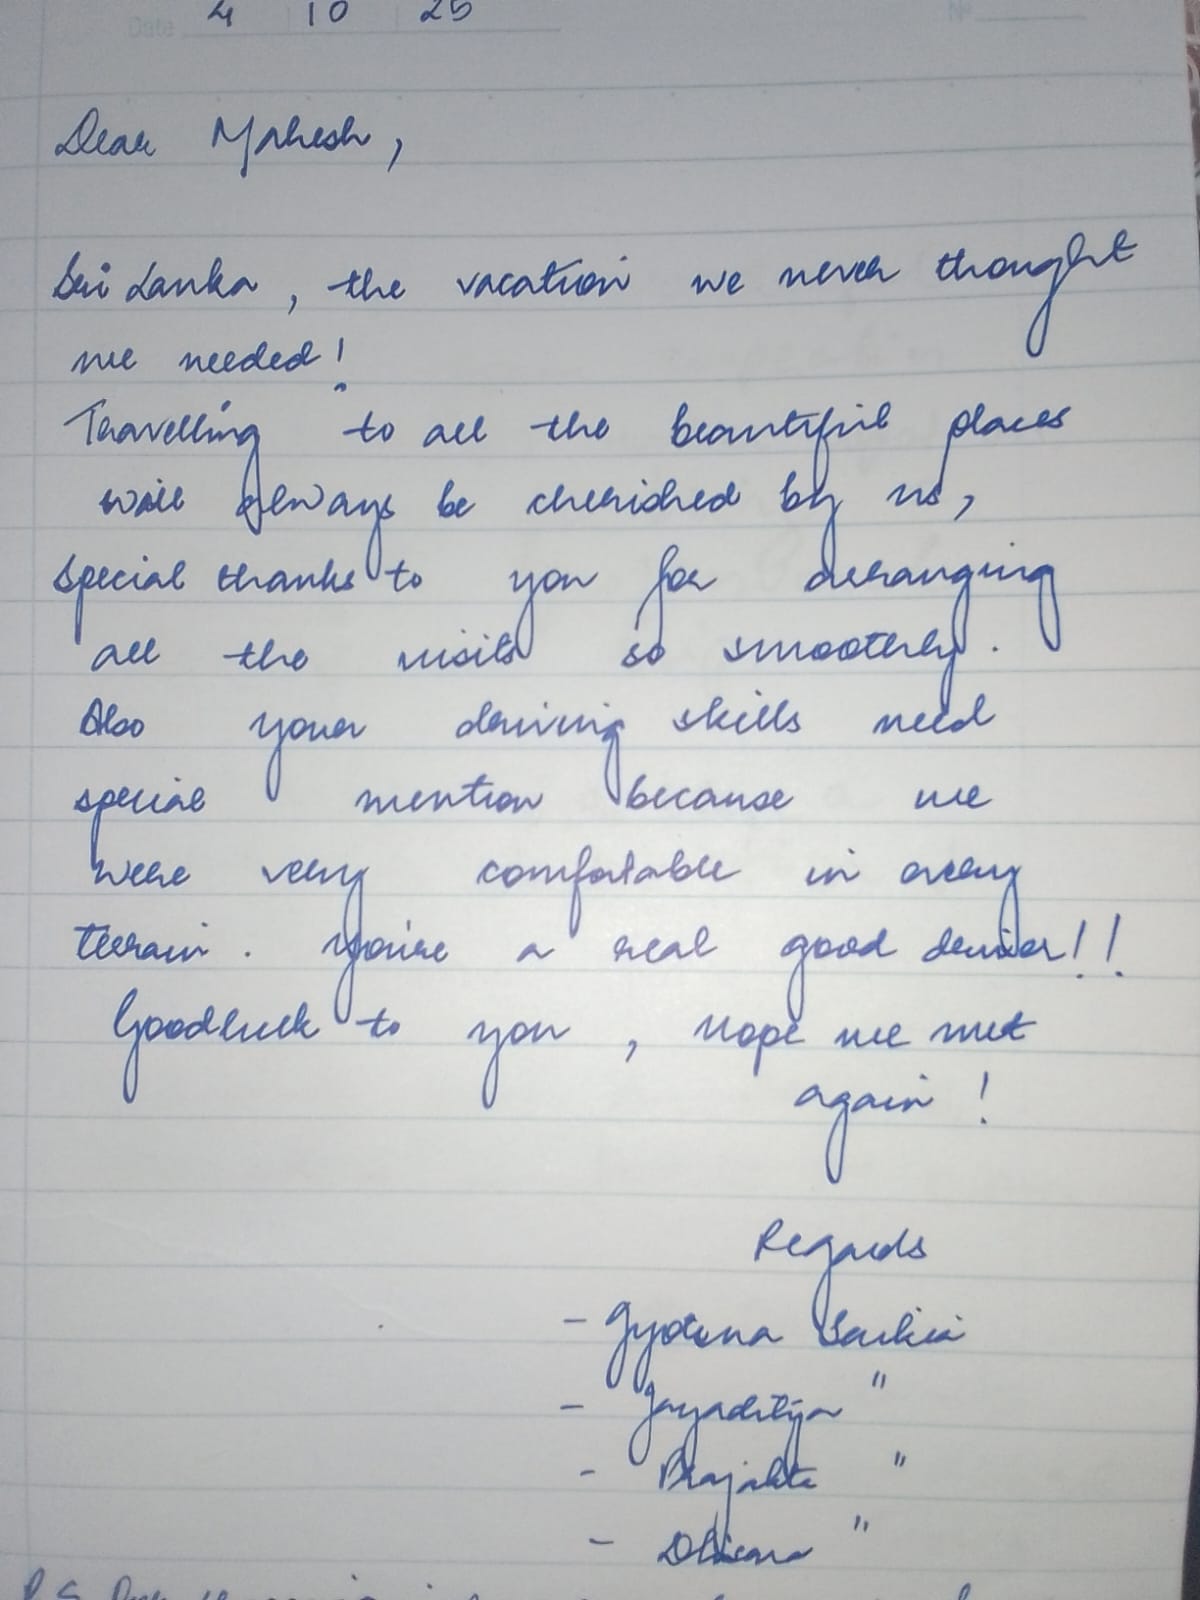 Date 4 10 25 Nº
Dear Mahesh,
Sri Lanka, the vacation we never thought
we needed!
Travelling to all the beautiful places
will always be cherished by us,
special thanks to you for arranging
all the visits so smoothly.
Also your driving skills need
special mention because we
were very comfortable in every
terrain. You're a real good driver!!
Goodluck to you, hope we met
again!
Regards
- Gyotsna Saikia
- Jayaditya "
- Prajakta "
- "
P.S